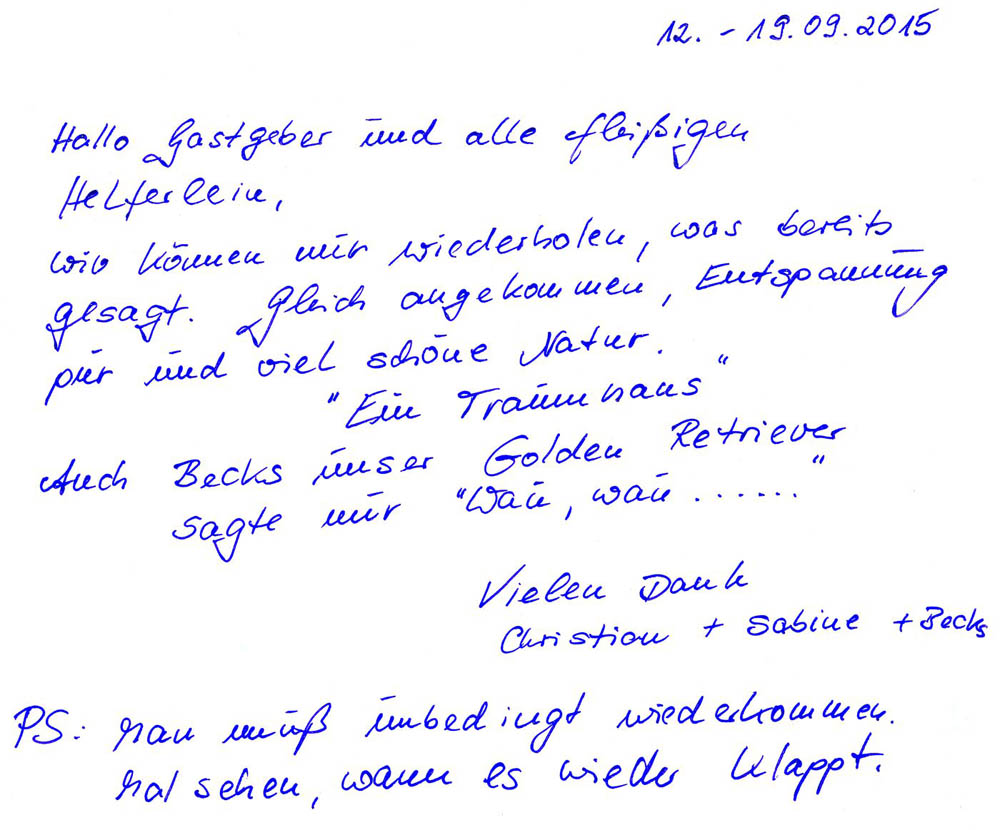 12. - 19.09.2015
Hallo Gastgeber und alle fleißigen
Helferlein,
wir können nur wiederholen, was bereits
gesagt. Gleich angekommen, Entspannung
pur und viel schöne Natur.
"Ein Traumhaus"
Auch Becks unser Golden Retriever
sagte nur "Wau, wau ......"
Vielen Dank
Christian + Sabine + Becks
PS: Man muß unbedingt wiederkommen.
Mal sehen, wann es wieder klappt.